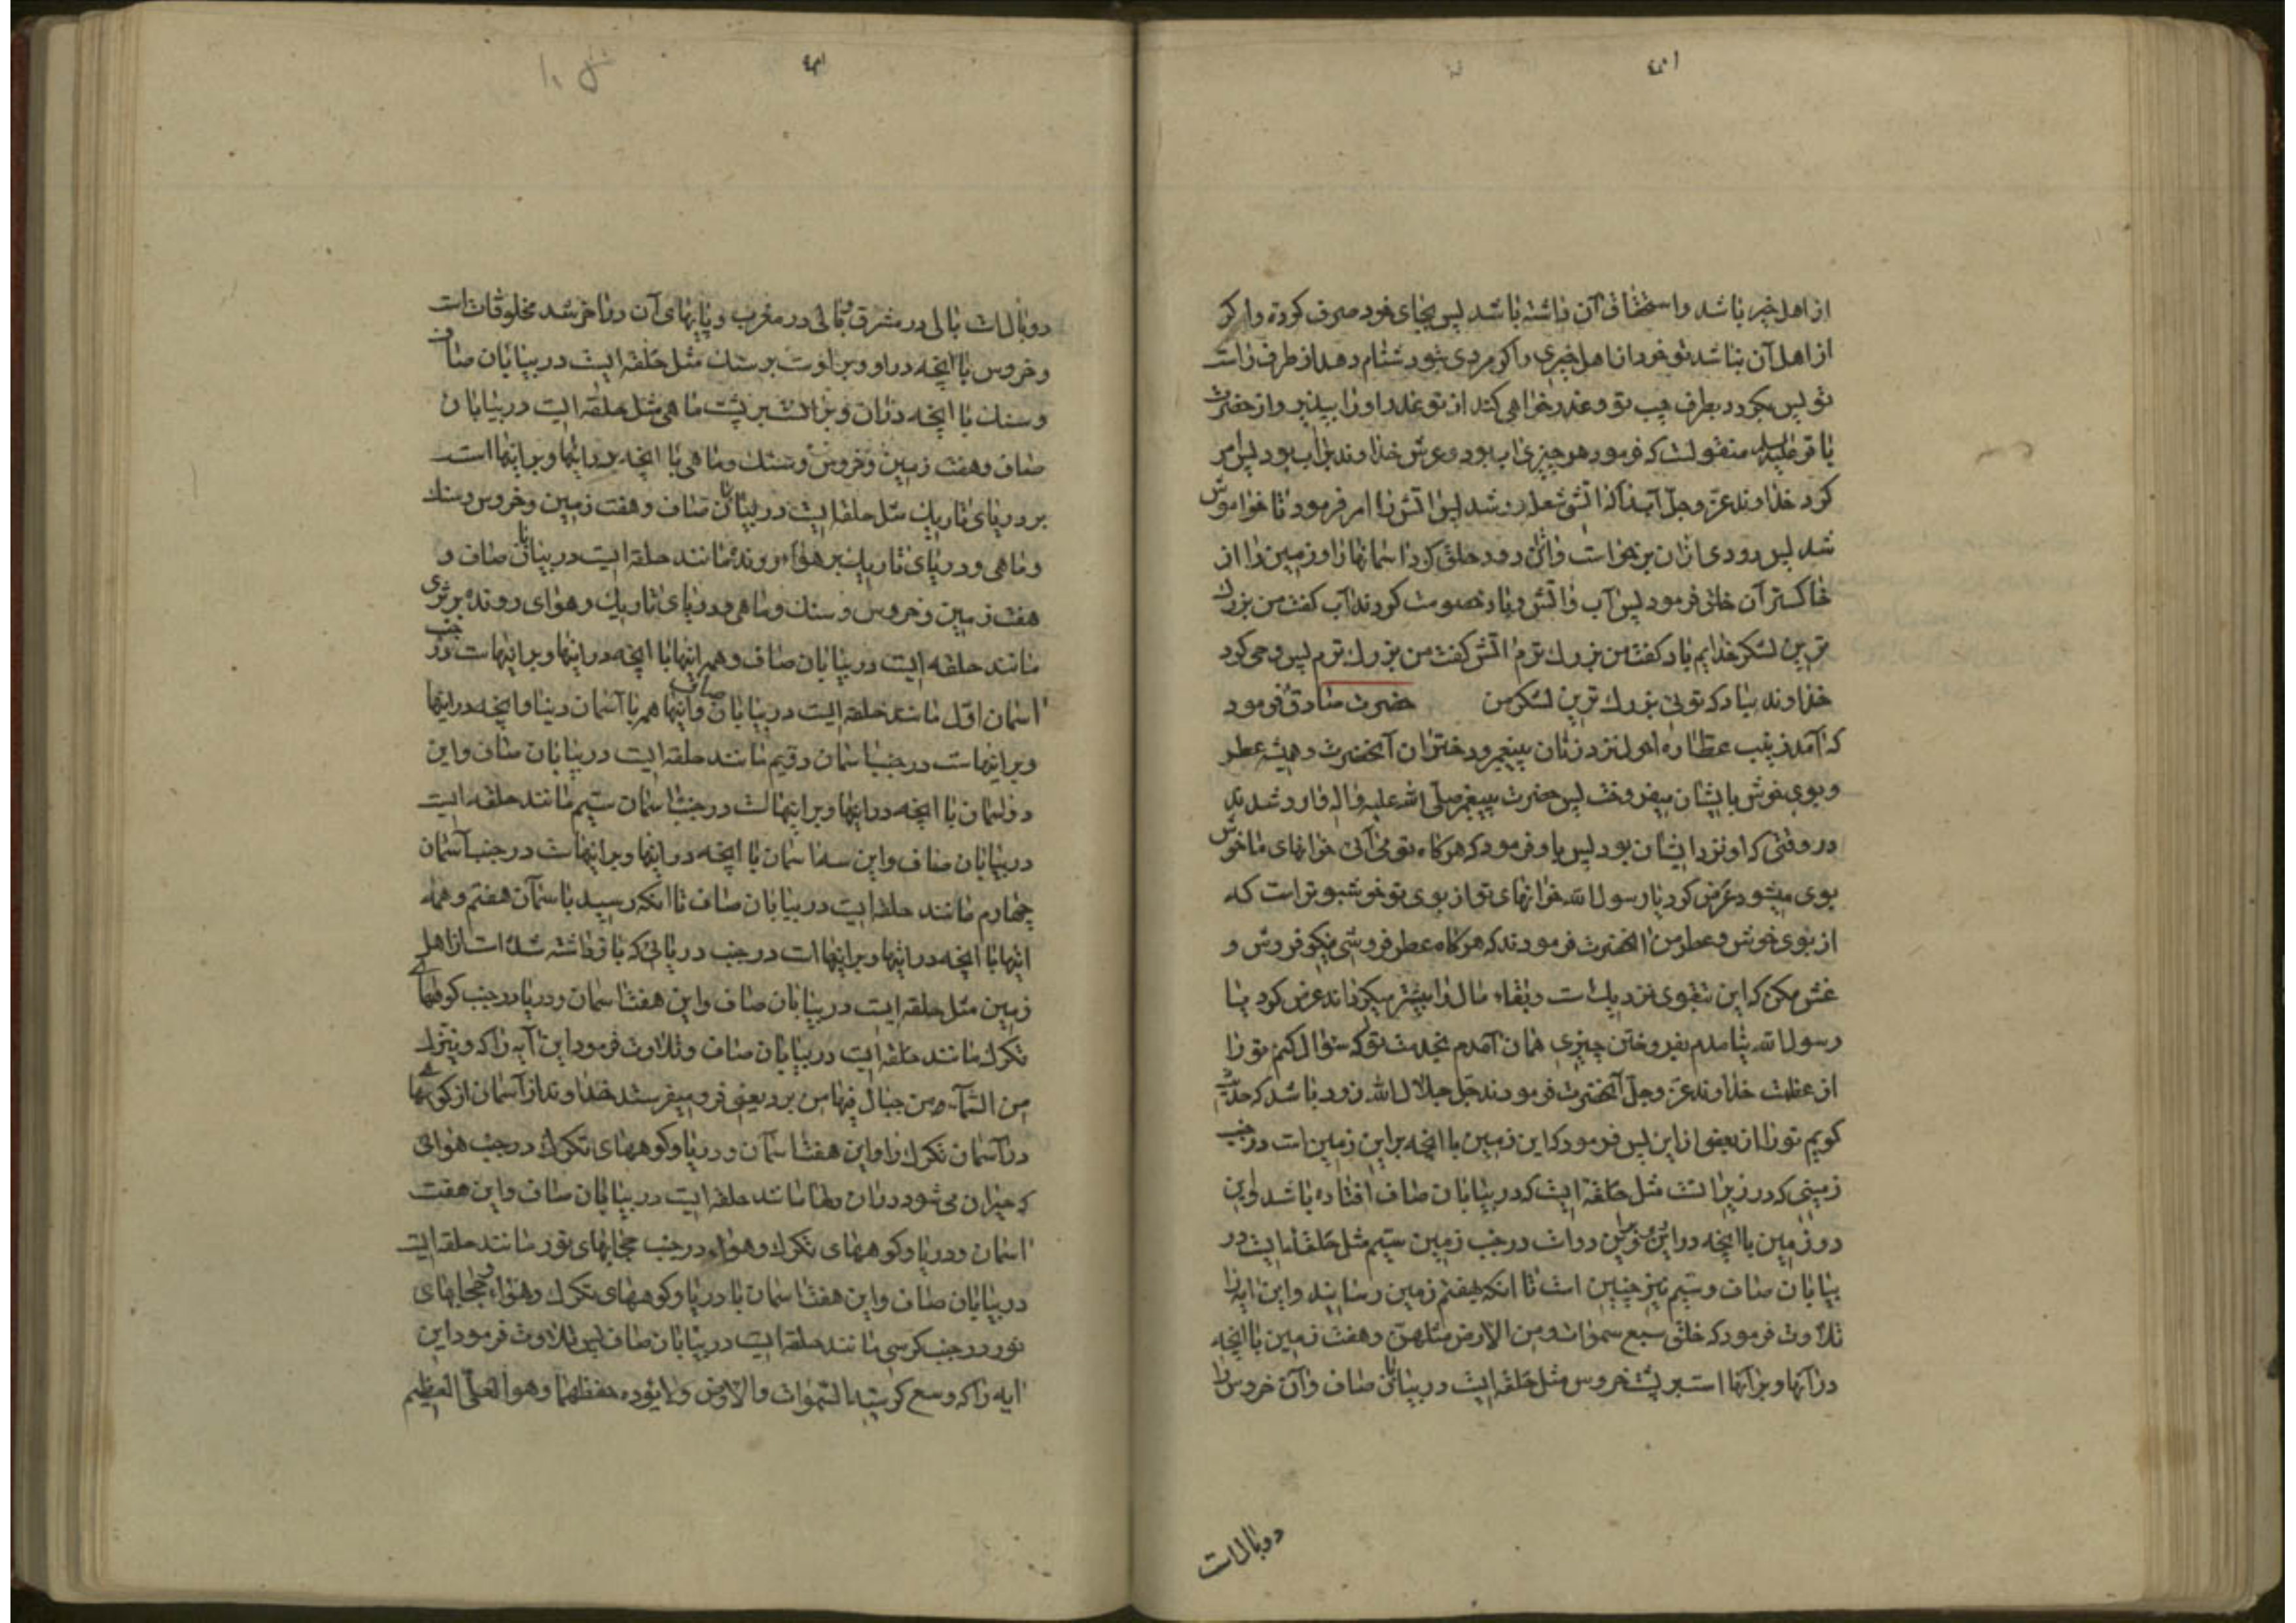 از اهل خیر باشد واستحقاق آن داشته باشد پس بجای خود صرف کرده واکر
از اهل آن نباشد تو خود از اهل خیری واکر مردی تورا دشنام دهد از طرف راست
تو پس بکردد بطرف چپ تو وعذر خواهی کند از تو عذر اورا بپذیر واز حضرت
باقر علیه السلم منقولست که فرمود هر چیزی اب بود وعرش خداوند بر اب بود پس امر
کرد خداوند عزّ وجلّ آب را که اتش شعله ور شد پس اتش را امر فرمود تا خواموش
شد پس دودی ازان برخواست وازان دود خلق کرد اسمانها را وزمین را از
خاکستر آن خلق فرمود پس آب واتش وباد خصومت کردند آب کفت من بزرك
ترین لشکر خدایم باد کفت من بزرك ترم اتش کفت من بزرك ترم پس وحی کرد
خداوند بباد که توئی بزرك ترین لشکر من حضرت صادق فرمود
که آمد زینب عطاره احولا نزد زنان پیغمبر ودختران آنحضرت وهمیشه عطر
وبوی خوش بایشان میفروخت پس حضرت پیغمبر صلّی الله علیه واله وارد شدند
در وقتی که او نزد ایشان بود پس باو فرمود که هرکاه تو می آئی خوانهای ما خوش
بوی میشود عرض کرد یا رسول الله خوانهای تو از بوی تو خوشبو تر است که
از بوی خوش وعطر من انحضرت فرمودند که هرکاه عطر فروشی نیکو فروش و
غش مکن که این بتقوی نزدیك است وبقاء مال را بیشتر میکرداند عرض کرد یا
رسول الله نیامدم بفروختن چیزی همان آمدم بخدمت تو که سئوال کنم تو را
از عظمت خداوند عزّ وجلّ آنحضرت فرمودند جلّ جلال الله زود باشد که حدیث
کویم تورا از بعض از این پس فرمود که این زمین با انچه بر این زمین است در جنب
زمینی که در زیر انست مثل حلقه ایست که در بیابان صاف افتاده باشد واین
دو زمین با انچه در این وبر این دو است در جنب زمین سیّم مثل حلقه ایست در
بیابان صاف وسیّم نیز چنین است تا انکه بهفتم زمین رسانید واین ایه را
تلاوت فرمود که خلق سبع سموات ومن الارض مثلهنّ وهفت زمین با انچه
در آنها وبر آنها است بر پشت خروس مثل حلقه ایست در بیابان صاف وآن خروس را
دو بال است
دو بال است بالی در مشرق وبالی در مغرب وپایهای آن در اخر شد مخلوقات است
وخروس با انچه در او وبر اوست بر سنك مثل حلقه ایست در بیابان صاف
وسنك با انچه دران وبر انست بر پشت ماهی مثل حلقه ایست در بیابان
صاف وهفت زمین وخروس وسنك وماهی با انچه در انها وبر انها است
بر دریای تاریك مثل حلقه ایست در بیابان صاف وهفت زمین وخروس وسنك
وماهی ودریای تاریك بر هواء رونده مانند حلقه ایست در بیابان صاف و
هفت زمین وخروس وسنك وماهی ودریای تاریك وهوای رونده بر ثری
مانند حلقه ایست در بیابان صاف وهمه اینها با انچه در اینها وبر اینهاست در جنب
اسمان اوّل مانند حلقه ایست در بیابان صاف واینها همه با آسمان دنیا وانچه در اینها
وبر اینهاست در جنب اسمان دویّم مانند حلقه ایست در بیابان صاف واین
دو اسمان با انچه در اینها وبر اینهاست در جنب اسمان سیّم مانند حلقه ایست
در بیابان صاف واین سه اسمان با انچه در اینها وبر اینهاست در جنب آسمان
چهارم مانند حلقه ایست در بیابان صاف تا انکه رسید باسمان هفتم وهمه
اینها با انچه در اینها وبر اینها است در جنب دریائی که بازداشته شده است از اهل
زمین مثل حلقه ایست در بیابان صاف واین هفت اسمان ودریا در جنب کوههای
تکرك مانند حلقه ایست در بیابان صاف وتلاوت فرمود این آیه را که وینزل
من السّمآء من جبال فیها من برد یعنی فرو میفرستد خداوند از آسمان از کوههای
در آسمان تکرك را واین هفت اسمان ودریا وکوههای تکرك در جنب هوائی
که حیران می شود دران دلها مانند حلقه ایست در بیابان صاف واین هفت
اسمان ودریا وکوههای تکرك وهواء در جنب حجابهای نور مانند حلقه ایست
در بیابان صاف واین هفت اسمان با دریا وکوههای تکرك وهواء وحجابهای
نور در جنب کرسی مانند حلقه ایست در بیابان صاف پس تلاوت فرمود این
ایه را که وسع کرسیه السّموات والارض ولا یؤده حفظهما وهو العلیّ العظیم